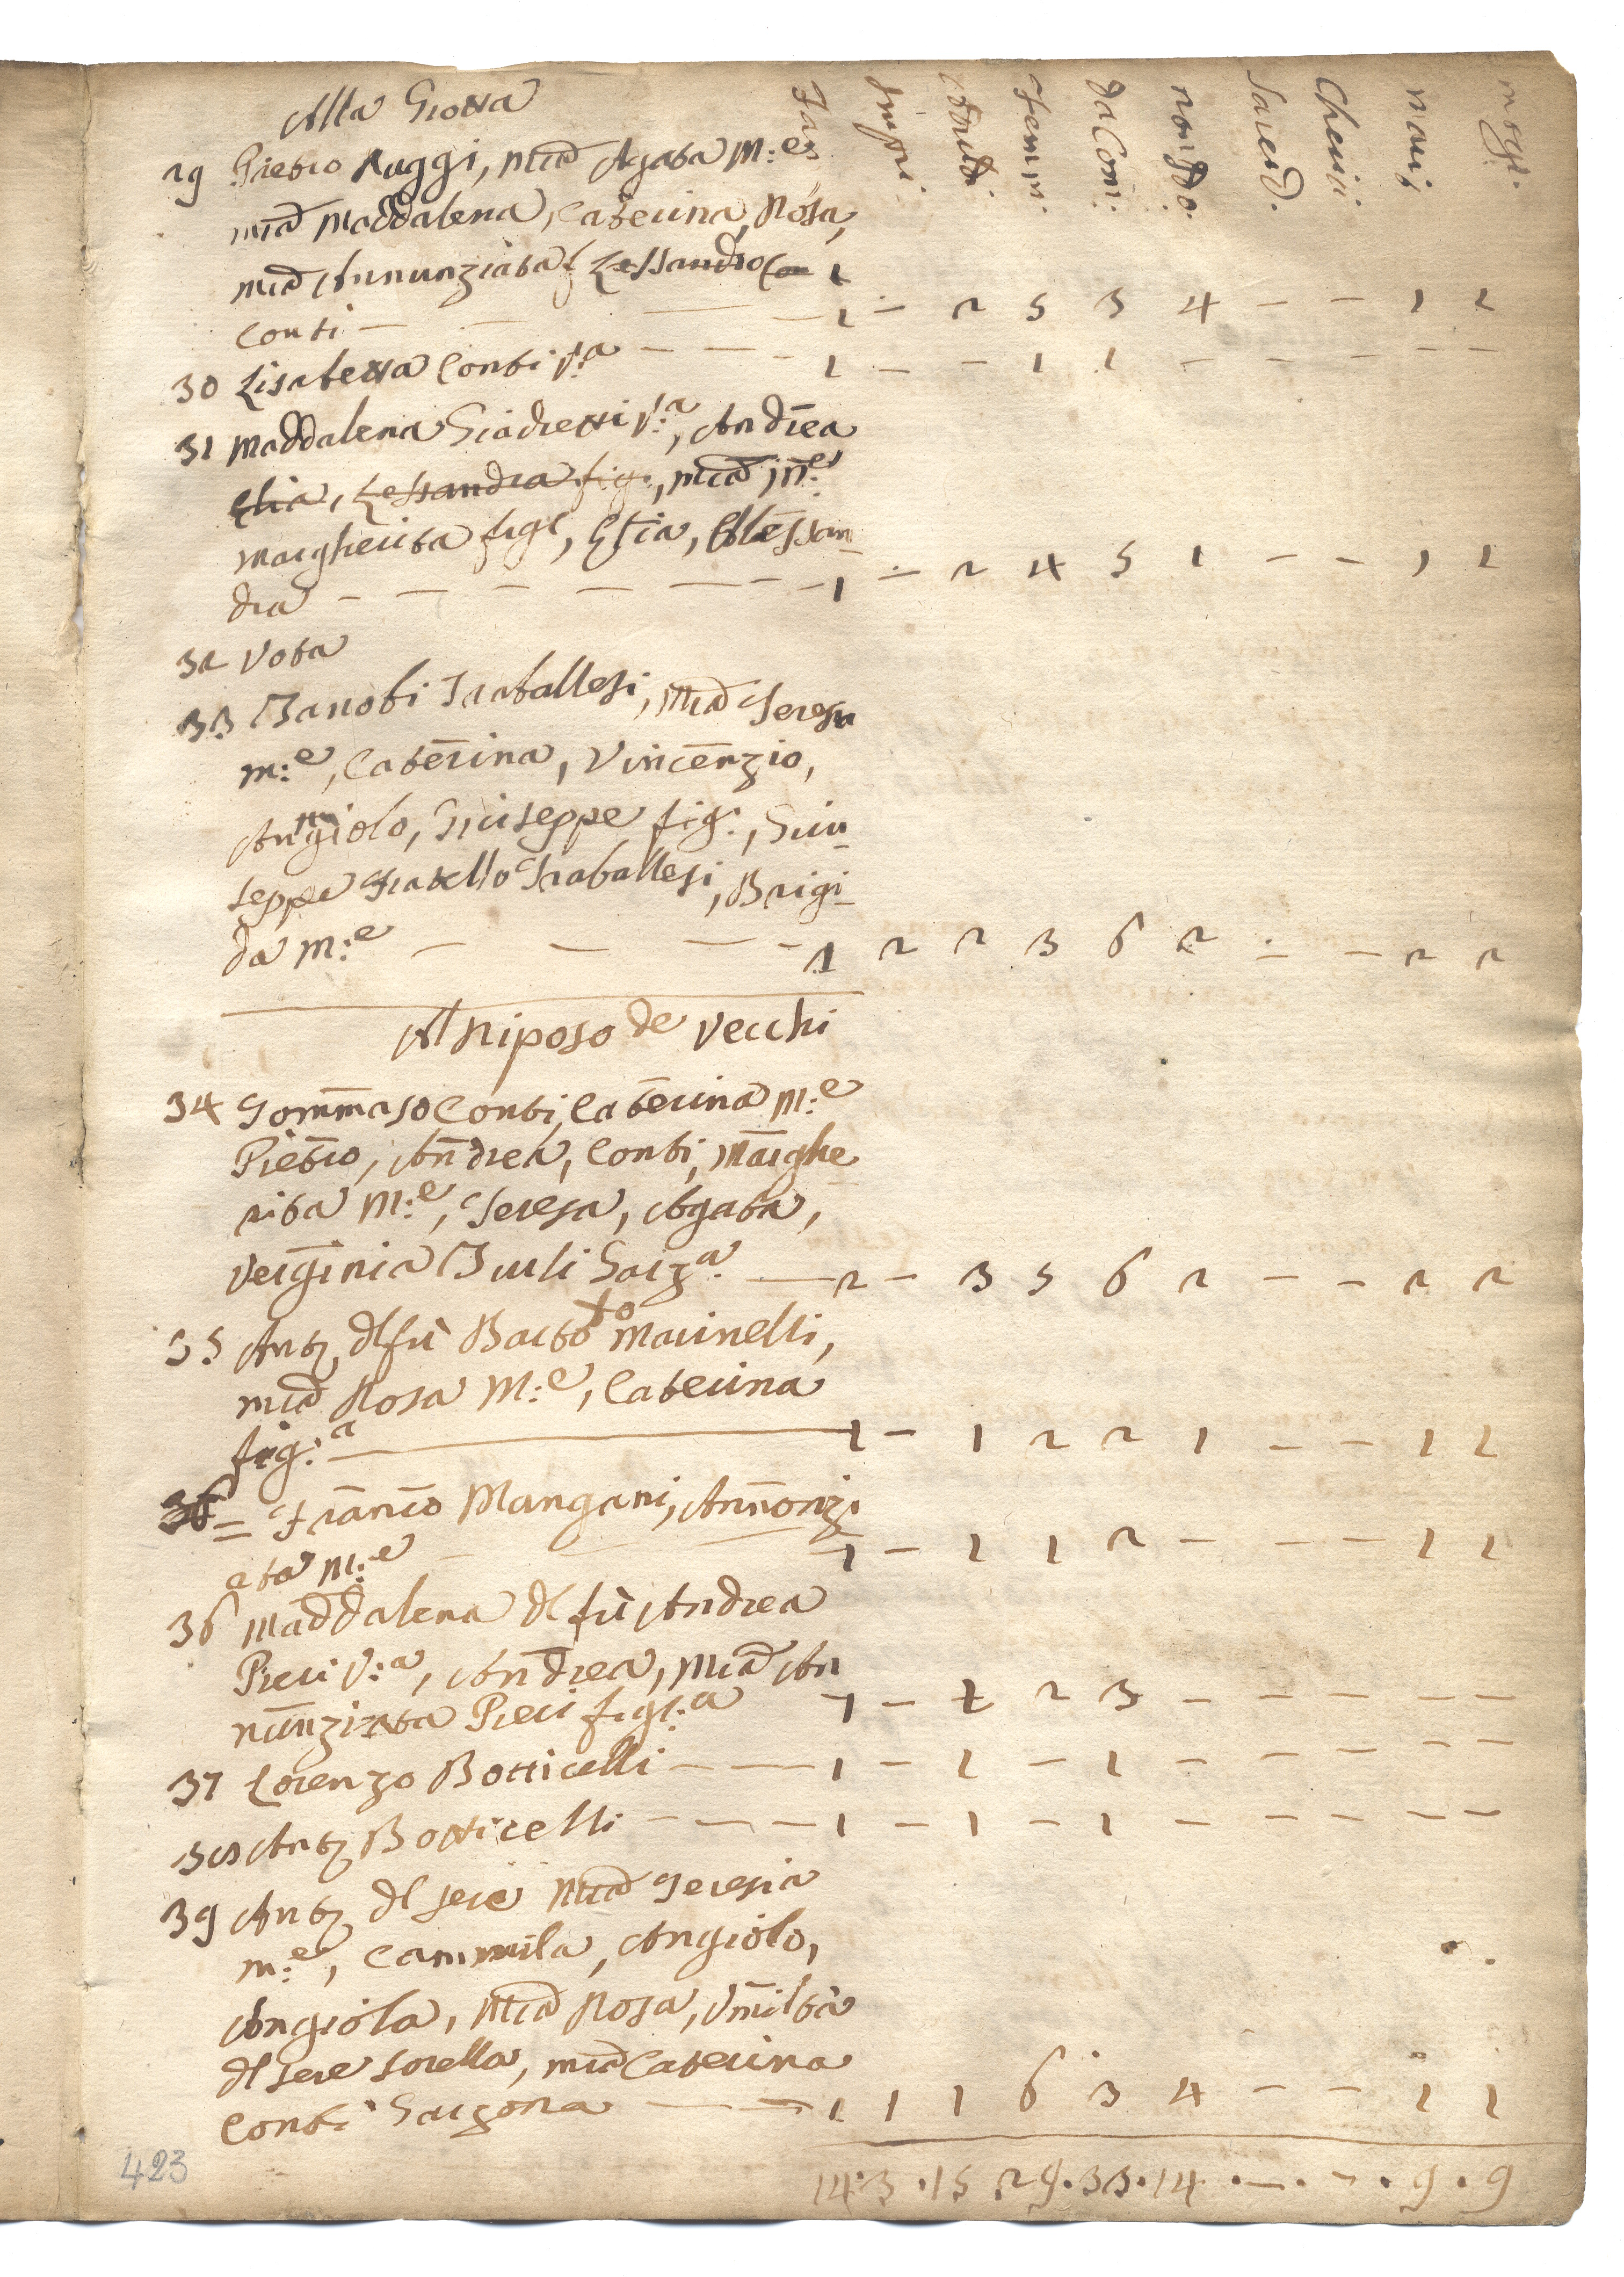 Alla Grotta
Fam Impu: Adulti Femm: da Com: non do: Sacerd. Cherici: mari: mogl:
29 Pietro Ruggi, M:ia Agata M:e
M:ia Maddalena, Caterina, Rosa,
M:ia Annunziata, Lessandro Con 1
Conti — — — — 1 — 2 5 3 4 — — 1 1
30 Lisabetta Conti V:a — — - 1 — — 1 1 — — — — —
31 Maddalena Giadretti V:a, Andrea
Elia, Lessandra fig:, M:ia M:e
Margherita figl, Elia, Alessan
dra — — — — — — 1 — 2 4 5 1 — — 1 1
32 Vota
33 Zanobi Traballesi, M:ia Teresa
m:e, Caterina, Vincenzio,
Angiolo, Giuseppe fig:, Giu
seppe Fratello Traballesi, Brigi
da M:e — — — - 1 2 2 3 6 2 — — 2 2
Al Riposo de Vecchi
34 Tommaso Conti, Caterina M:e
Pietro, Andrea, Conti, Marghe
rita M:e, Teresa, Agata,
Verginia Zurli Garz:a — 2 — 3 5 6 2 — — 2 2
35 Ant:o dl fù Barto:to Marinelli,
M:ia Rosa M:e, Caterina
fig:a — 1 — 1 2 2 1 — — 1 1
36 = Franco Mangani, Annonzi
ata M:e — — — 1 — 1 1 2 — — — 1 1
36 Maddalena dl fù Andrea
Pieri V:a, Andrea, M:ia An
nunziata Pieri figl:a 1 — 1 2 3 — — — — —
37 Lorenzo Botticelli — — 1 — 1 — 1 — — — — —
38 Ant:o Botticelli — — — 1 — 1 — 1 — — — — —
39 Ant:o dl Sere M:ia Teresia
m:e, Cammila, Angiolo,
Angiola, M:ia Rosa, Umilta
dl Sere Sorella, M:ia Caterina
Conti Garzona — — 1 1 1 6 3 4 — — 1 1
14 · 3 · 15 29 · 33 · 14 · — · — · 9 · 9
423